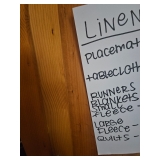 LINEN
PLACEMAT
TABLECLOTH
RUNNERS
BLANKETS
SMALL
FLEECE -
LARGE
FLEECE -
QUILTS -